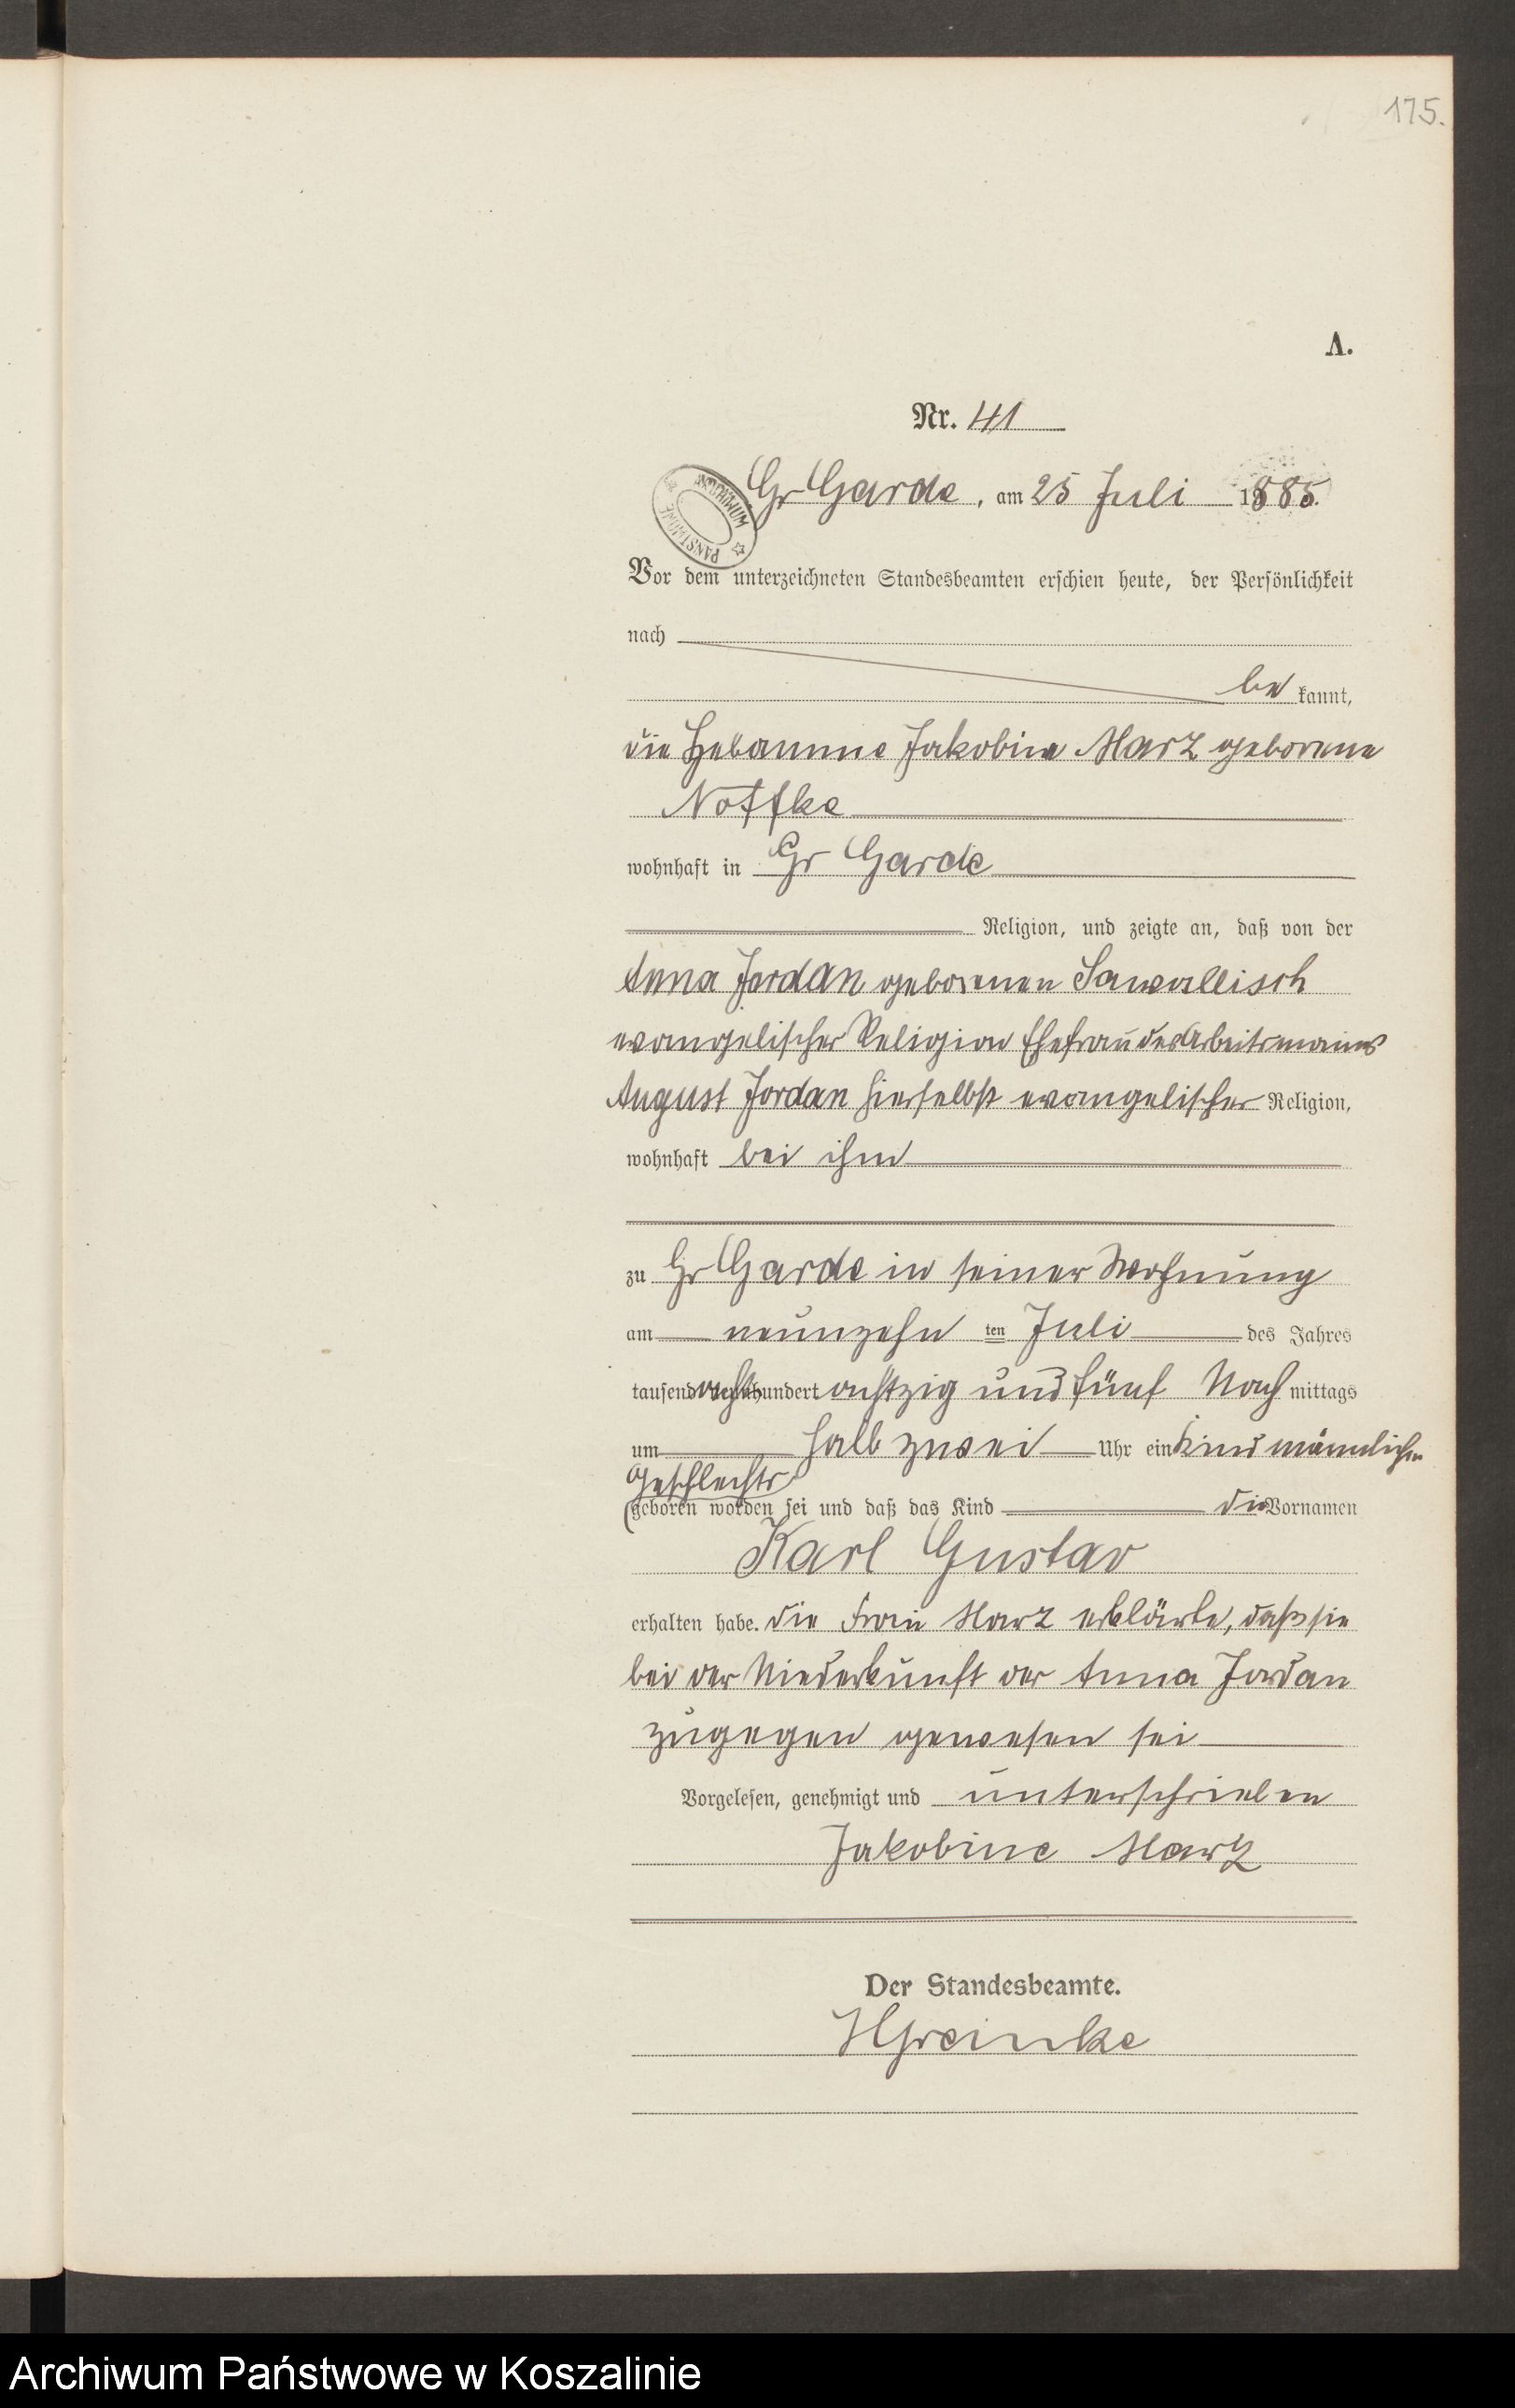 175.
A.
Nr. 41
Gr Garde, am 25 Juli 1885.
ARCHIWUM PAŃSTWOWE
Vor dem unterzeichneten Standesbeamten erschien heute, der Persönlichkeit
nach
be kannt,
die Hebamme Jakobine Marz geborene
Noffke
wohnhaft in Gr Garde
Religion, und zeigte an, daß von der
Anna Jordan geborenen Sawallisch
evangelischer Religion Ehefrau des Arbeitsmannes
August Jordan hierselbst evangelischer Religion,
wohnhaft bei ihm
zu Gr Garde in seiner Wohnung
am neunzehn ten Juli des Jahres
tausend acht hundert achtzig und fünf Nach mittags
um halb zwei Uhr ein Kind männlichen
Geschlechts
geboren worden sei und daß das Kind die Vornamen
Karl Gustav
erhalten habe. Die Frau Marz erklärte, daß sie
bei der Niederkunft der Anna Jordan
zugegen gewesen sei
Vorgelesen, genehmigt und unterschrieben
Jakobine Marz
Der Standesbeamte.
HGreinke
Archiwum Państwowe w Koszalinie